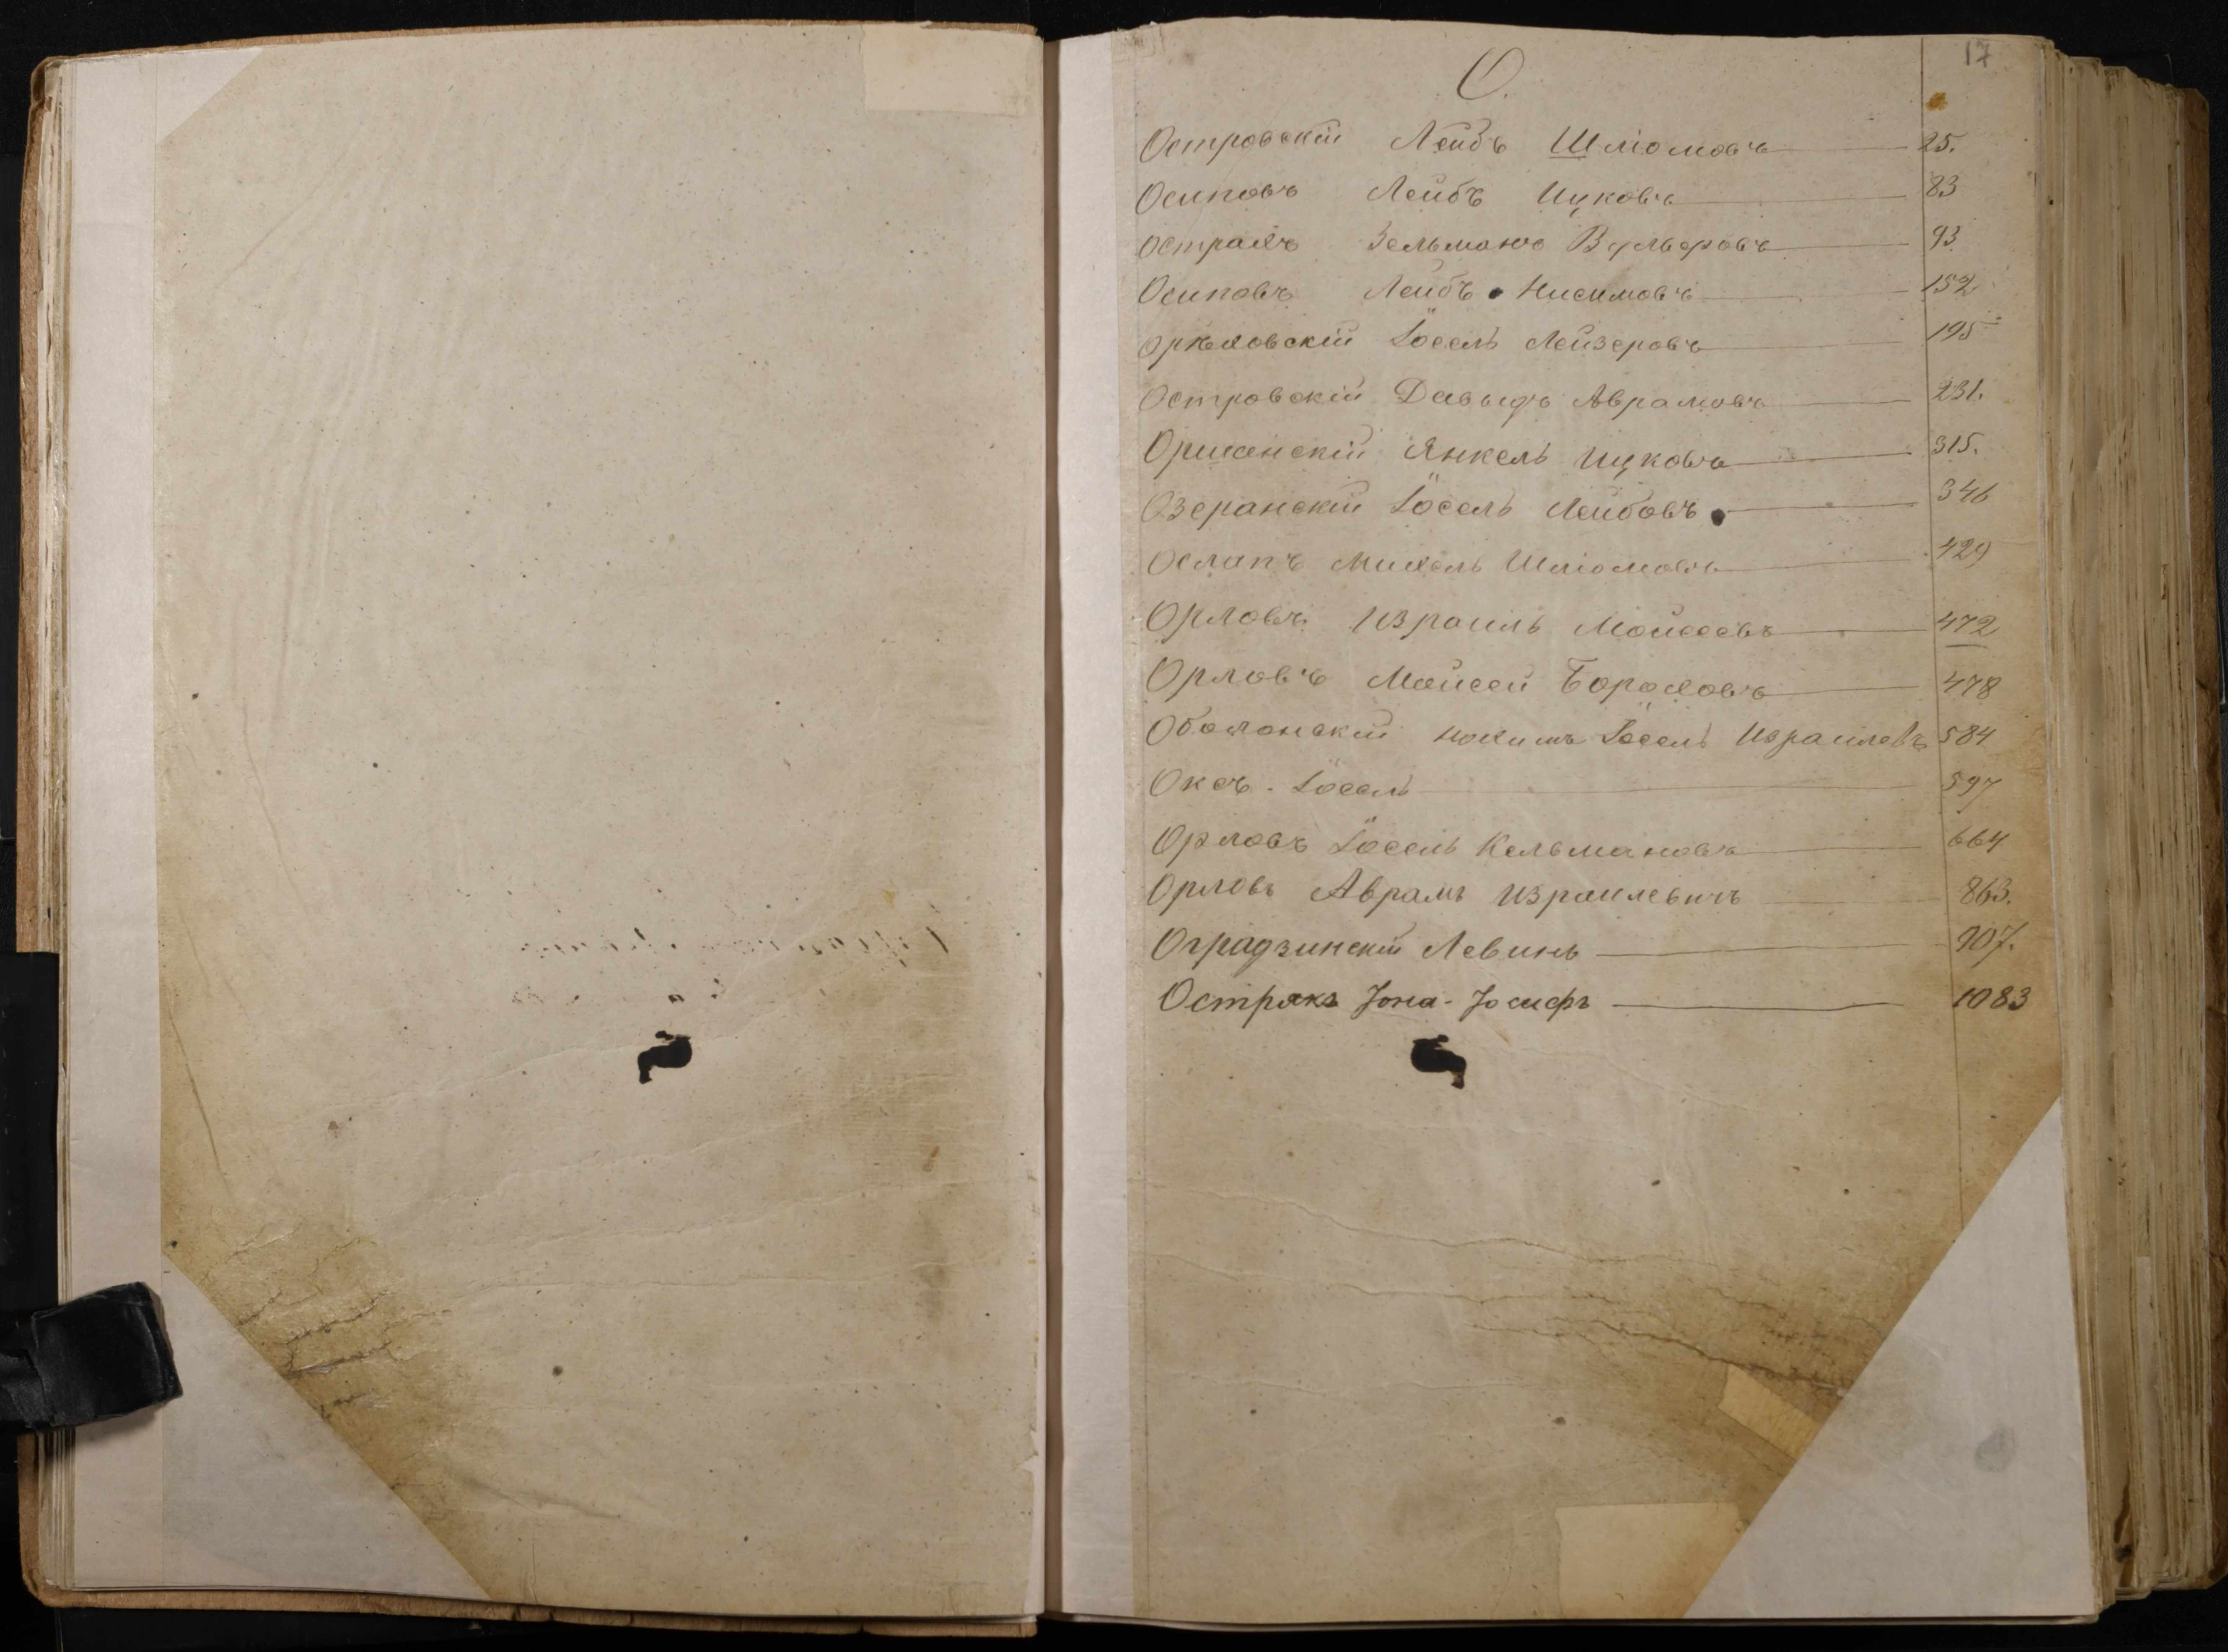 17
О.
Островскій Лейбъ Шліомовъ 25.
Осиповъ Лейбъ Ицковъ 83
Острахъ Зельманъ Вульфовъ 93
Осиповъ Лейбъ Нисимовъ 152
Орѣховскій Іосель Лейзеровъ 195
Островскій Давыдъ Аврамовъ 231.
Оршанскій Янкель Ицковъ 315.
Озеранскій Іосель Лейбовъ 346
Ослапъ Михель Шліомовъ 429
Орловъ Израиль Мойсеевъ 472
Орловъ Мойсей Бороховъ 478
Оболонскій Нохимъ Іосель Израилевъ 584
Оксъ - Іосель 597
Орловъ Іосель Кельмановъ 664
Орловъ Аврамъ Израилевичъ 863.
Оградзинскій Левинъ 907.
Острякъ Іона-Іосифъ 1083